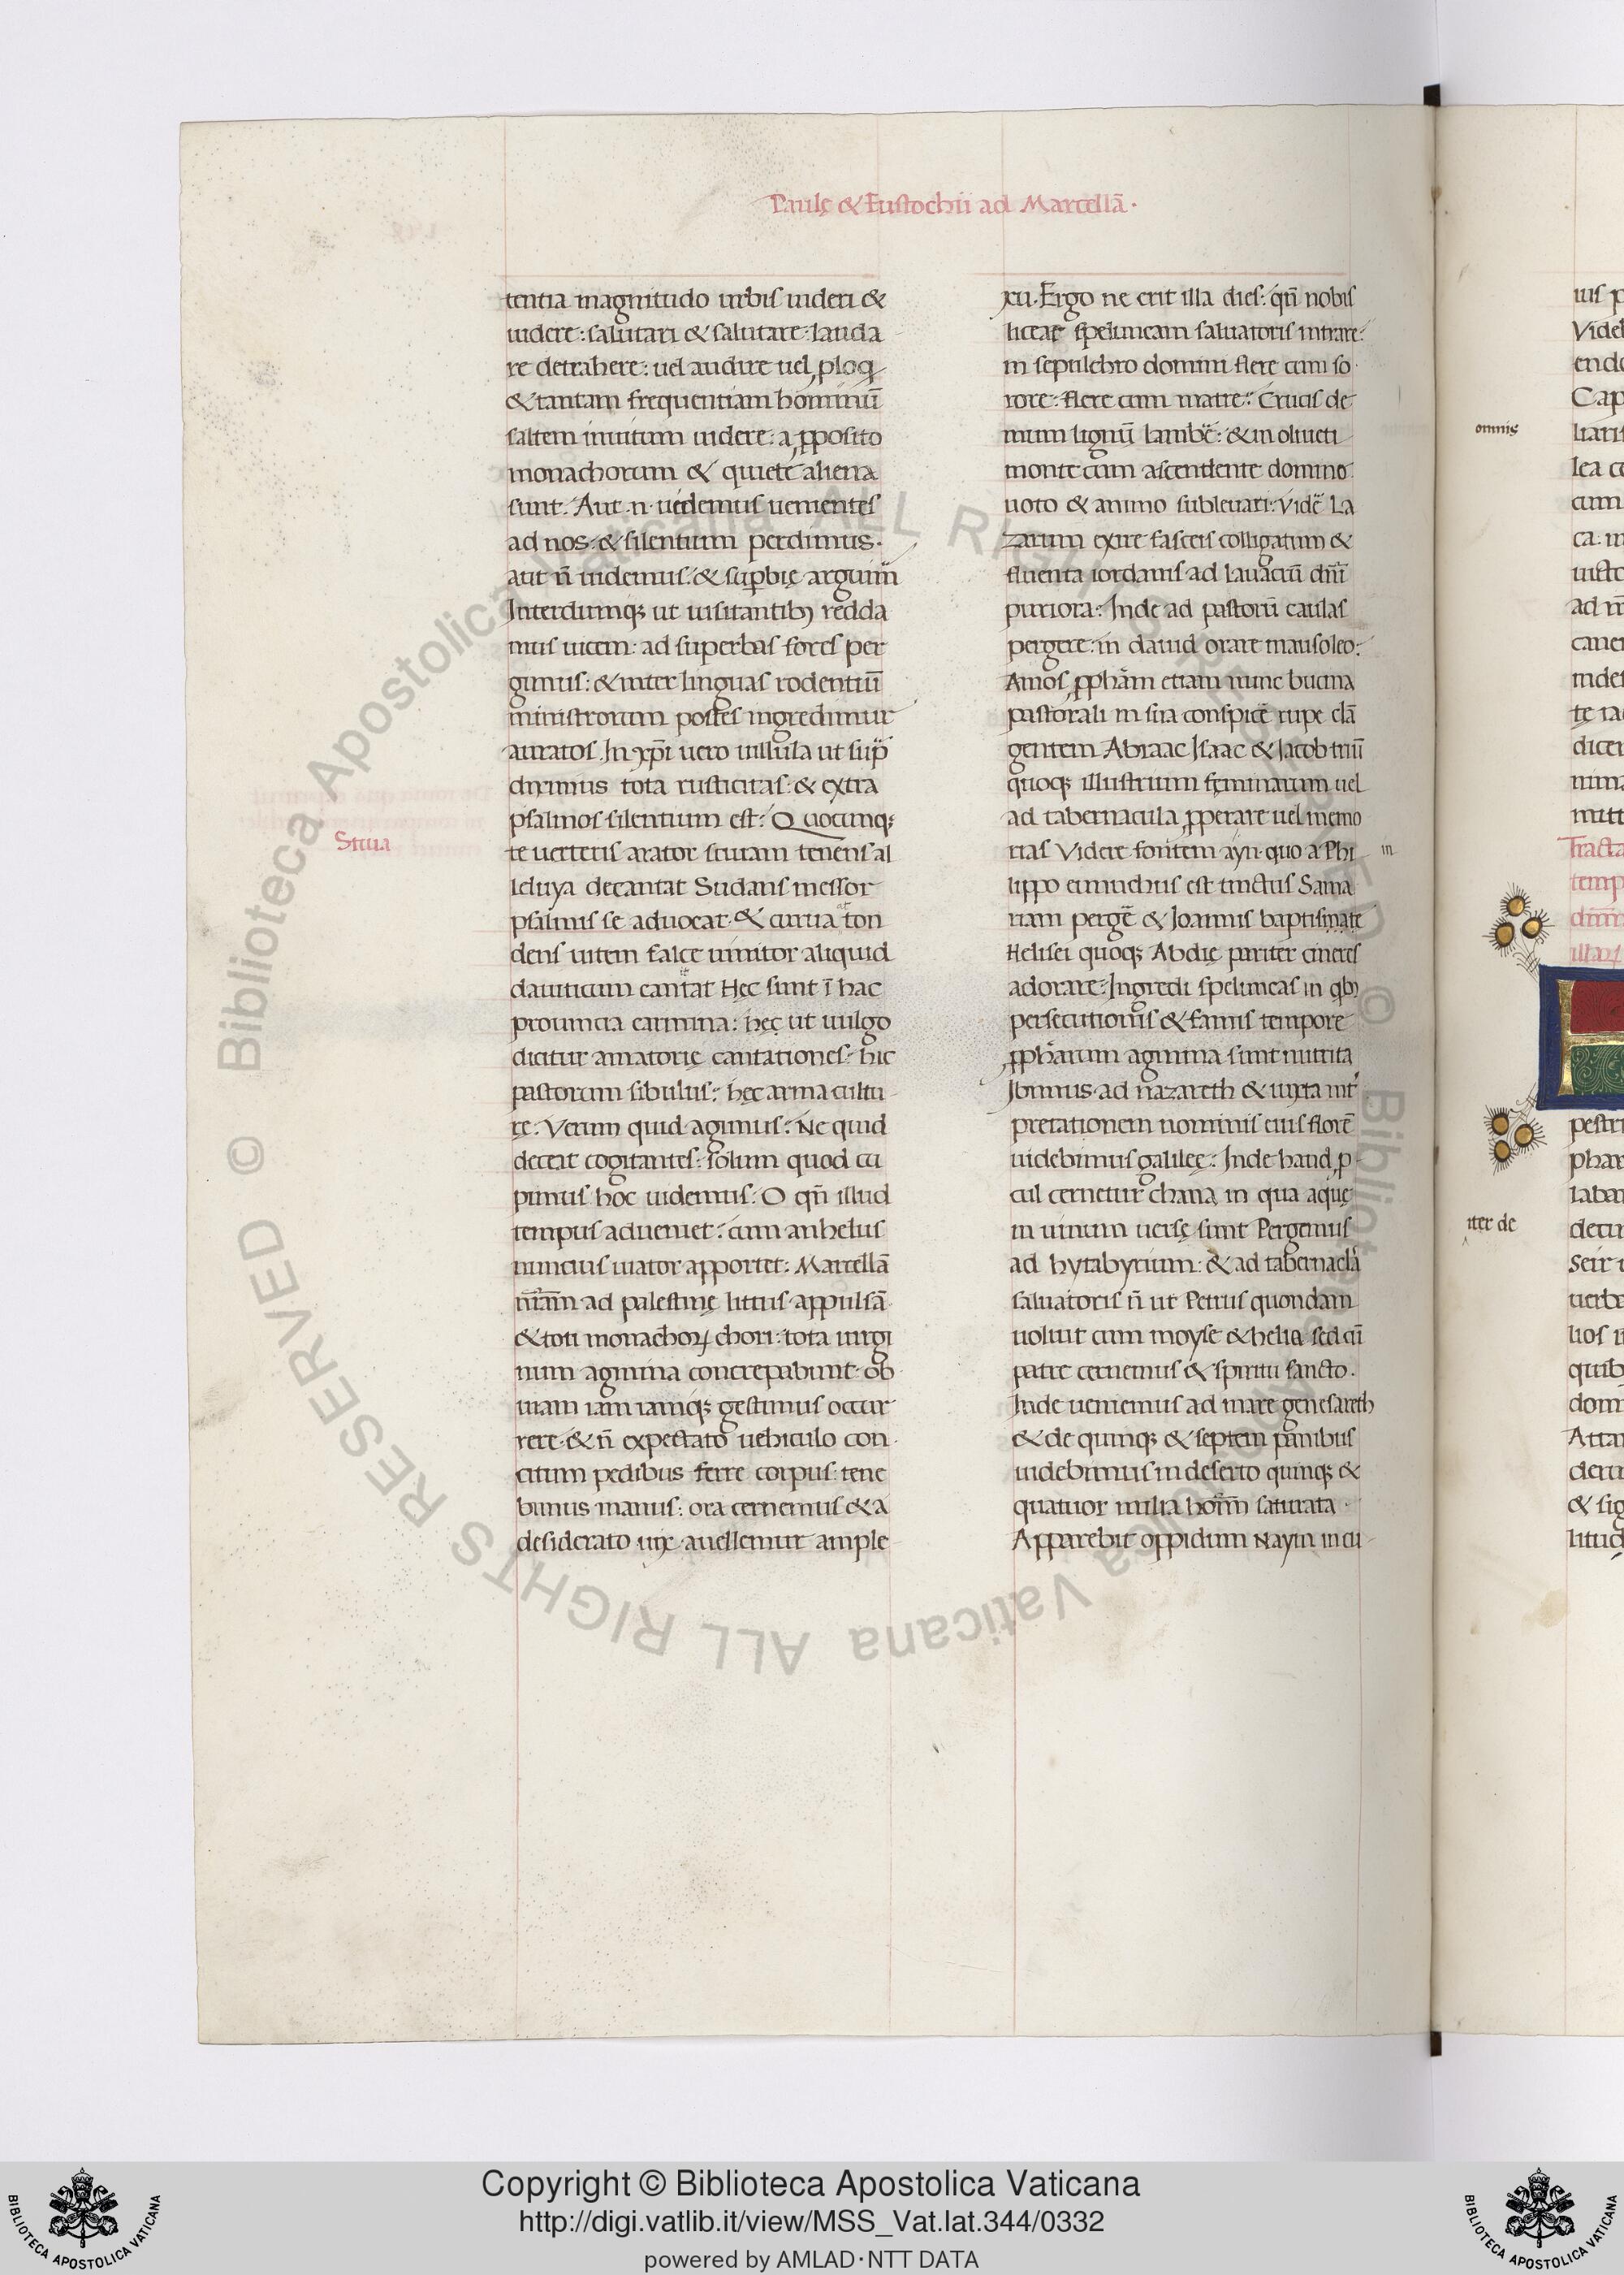 Paulę & Eustochii ad Marcellā·
tentia magnitudo urbis uideri &
uidere: salutari & salutare: lauda
re detrahere: uel audire uel ploq
& tantam frequentiam hominū
saltem inuitum uidere: a pposito
monachorum & quiete aliena
sunt. Aut .n. uidemus uenientes
ad nos: & silentium perdimus.
aut n̄ uidemus: & supbię arguim̄
Interdumq; ut uisitantib; redda
mus uicem: ad superbas fores per
gimus: & inter linguas rodentiū
ministrorum postes ingredimur
auratos. In xp̄i uero uillula ut sup̄
diximus tota rusticitas: & extra
psalmos silentium est: Quocunq;
te uerteris arator stiuam tenens al
leluya decantat Sudans messor
psalmis se aduocat & curua ton
dens uitem falce uinitor aliquid
dauiticum cantat Hęc sunt ī hac
prouincia carmina: hęc ut uulgo
dicitur amatorię cantationes: hic
pastorum sibulus: hęc arma cultu
rę. Verum quid agimus: Ne quid
deceat cogitantes: solum quod cu
pimus hoc uidemus: O qn̄ illud
tempus adueniet: cum anhelus
nuncius uiator apportet: Marcellā
nr̄am ad palestinę littus appulsā
& toti monachoꝝ chori: tota uirgi
num agmina concrepabunt. ob
uiam iam iamq; gestimus occur
rere. & n̄ expectato uehiculo con
citum pedibus ferre corpus: tene
bimus manus: ora cernemus & a
desiderato uix auellemur ample
Stiua
xu. Ergo ne erit illa dies: qn̄ nobis
liceat speluncam saluatoris intrare:
in sepulchro domini flere cum so
rore: flere cum matre: Crucis de
mum lignū lambē: & in oliueti
monte cum ascendente domino
uoto & animo subleuari: Vidē La
zarum exire fasceis colligatum &
fluenta iordanis ad lauacrū dn̄i
puriora: Inde ad pastorū caulas
pergere: in dauid orare mausoleo:
Amos pphām etiam nunc bucina
pastorali in sua conspicē rupe clā
gentem Abraac Isaac & Iacob triū
quoq; illustrium feminarum uel
ad tabernacula pperare uel memo
rias Videre fontem ayn quo a Phi
in
lippo eunuchus est tinctus Sama
riam pergē & Ioannis baptismate
Helisei quoq; Abdię pariter cineres
adorare: Ingredi speluncas in qb;
persecutionis & famis tempore
pphārum agmina sunt nutrita
Ibimus ad nazareth & iuxta int̄
pretationem nominis eius florē
uidebimus galileę: Inde haud p
cul cernetur chana in qua aquę
in uinum uersę sunt Pergemus
ad hytabyrium: & ad tabernacla
saluatoris n̄ ut Petrus quondam
uoluit cum moyse & helia sed cū
patre cernemus & spiritu sancto.
Inde ueniemus ad mare genesareth
& de quinq; & septem panibus
uidebimus in deserto quinq; &
quatuor milia hoīm saturata.
Apparebit oppidum Nayin in cu
omnis
iter de
© Biblioteca Apostolica Vaticana ALL RIGHTS RESERVED
© Biblioteca Apostolica Vaticana ALL RIGHTS RESERVED
Copyright © Biblioteca Apostolica Vaticana
http://digi.vatlib.it/view/MSS_Vat.lat.344/0332
powered by AMLAD·NTT DATA
BIBLIOTECA APOSTOLICA VATICANA
BIBLIOTECA APOSTOLICA VATICANA